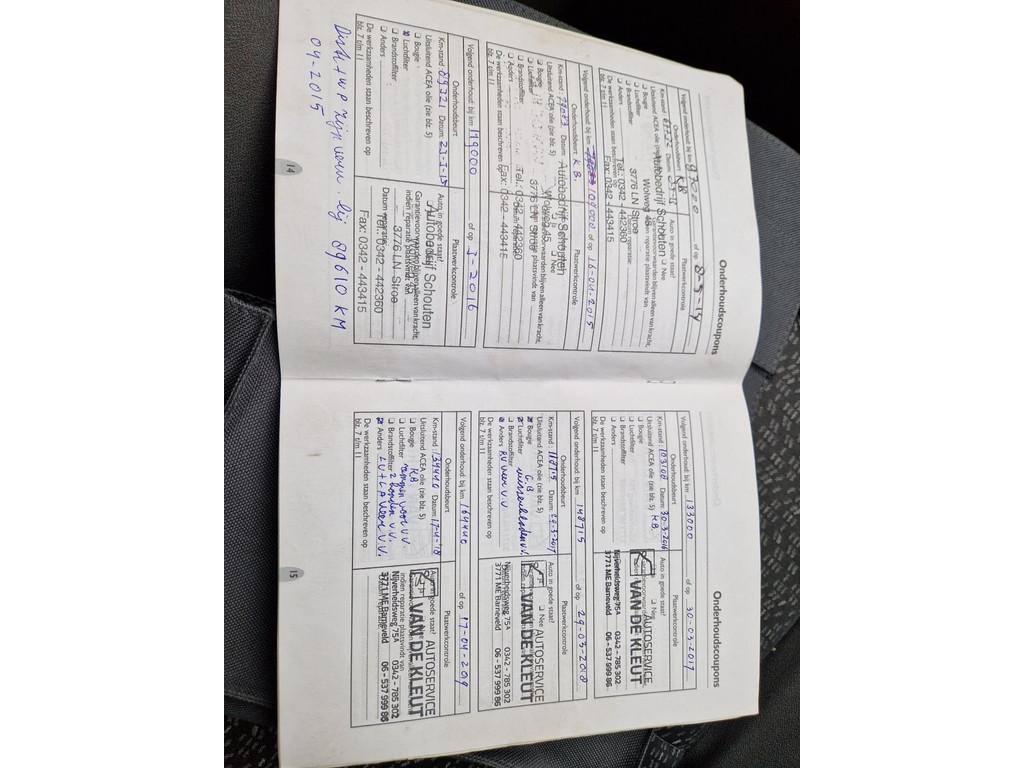 Onderhoudscoupons
Volgend onderhoud: bij km
of op 8-5-14
Onderhoudsbeurt
Plaatwerkcontrole
Km-stand
Datum
KB
Uitsluitend ACEA olie (zie blz. 5)
Nee
❑ Bougie
❑ Luchtfilter
❑ Brandstoffilter
❑ Anders
De werkzaamheden staan beschreven op
blz. 7 t/m 11
Autobedrijf Schouten
Wolweg 45
3776 LN Stroe
Tel.: 0342 - 442360
Fax: 0342 - 443415
Volgend onderhoud: bij km
of op 16-04-2015
Onderhoudsbeurt
Plaatwerkcontrole
K.B.
Km-stand
Datum
Uitsluitend ACEA olie (zie blz. 5)
❑ Nee
❑ Bougie
❑ Luchtfilter
❑ Brandstoffilter
❑ Anders
De werkzaamheden staan beschreven op
blz. 7 t/m 11
Autobedrijf Schouten
Wolweg 45
3776 LN Stroe
Tel.: 0342 - 442360
Fax: 0342 - 443415
Volgend onderhoud: bij km 119000 of op 3-2016
Onderhoudsbeurt
Plaatwerkcontrole
Km-stand 89721 Datum: 23-3-15
Auto in goede staat?
Uitsluitend ACEA olie (zie blz. 5)
❑ Bougie
Luchtfilter
❑ Brandstoffilter
❑ Anders
De werkzaamheden staan beschreven op
blz. 7 t/m 11
Garantievoorwaarden blijven alleen van kracht,
indien reparatie plaatsvindt van
Datum reparatie:
Autobedrijf Schouten
3776 LN Stroe
Tel.: 0342 - 442360
Fax: 0342 - 443415
zijn vern. bij 89610 KM
04-2015
14
Onderhoudscoupons
Volgend onderhoud: bij km 133000 of op 30-03-2017
Onderhoudsbeurt
Plaatwerkcontrole
Km-stand 103108 Datum 30-3-2016
Uitsluitend ACEA olie (zie blz. 5) KB.
❑ Nee
❑ Bougie
❑ Luchtfilter
❑ Brandstoffilter
❑ Anders
De werkzaamheden staan beschreven op
blz. 7 t/m 11
AUTOSERVICE
VAN DE KLEUT
Nijverheidsweg 75A 0342 - 785 302
3771 ME Barneveld 06 - 537 999 86
Volgend onderhoud: bij km 148715 of op 29-03-2018
Onderhoudsbeurt
Plaatwerkcontrole
Km-stand 118715 Datum: 29-3-2017
Auto in goede staat?
Uitsluitend ACEA olie (zie blz. 5) G.B
❑ Nee
Bougie
Luchtfilter
❑ Brandstoffilter
Anders RV veer V.V
De werkzaamheden staan beschreven op
blz. 7 t/m 11
AUTOSERVICE
VAN DE KLEUT
Nijverheidsweg 75A 0342 - 785 302
3771 ME Barneveld 06 - 537 999 86
Volgend onderhoud: bij km 164440 of op 17-04-2019
Onderhoudsbeurt
Plaatwerkcontrole
Km-stand 134440 Datum: 17-4-'18
Auto in goede staat?
Uitsluitend ACEA olie (zie blz. 5)
❑ Bougie KB
❑ Luchtfilter
❑ Brandstoffilter
Anders LV + LA veer V.V.
De werkzaamheden staan beschreven op
blz. 7 t/m 11
indien reparatie plaatsvindt van
AUTOSERVICE
VAN DE KLEUT
Nijverheidsweg 75A 0342 - 785 302
3771 ME Barneveld 06 - 537 999 86
15